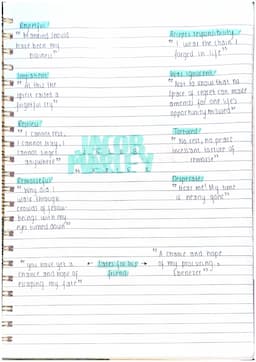 Regretful
"Mankind should
have been my
business"
Accepts responsibility
"I wear the chain I
forged in life"
"At this the
spirit raised a
frightful cry"
Was ignorant
"Not to know that no
space of regret can make
amends for one life's
opportunity misused"
"I cannot rest,
I cannot stay, I
cannot linger
anywhere"
JACOB
MARLEY
Tortured
"No rest, no peace
incessant torture of
remorse"
Remorseful
"Why did I
walk through
crowds of fellow-
beings with my
eyes turned down"
Desperate
"Hear me! My time
is nearly gone"
"you have yet a
chance and hope of
escaping my fate"
friend
"A chance and hope
of my procuring,
Ebenezer"